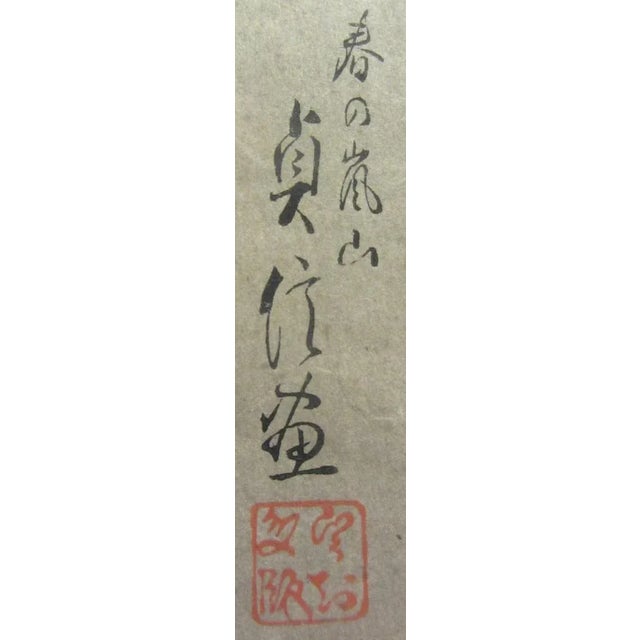 春の嵐山
貞信画